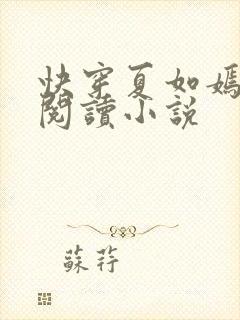 快穿夏如嫣
閱讀小説
蘇荇